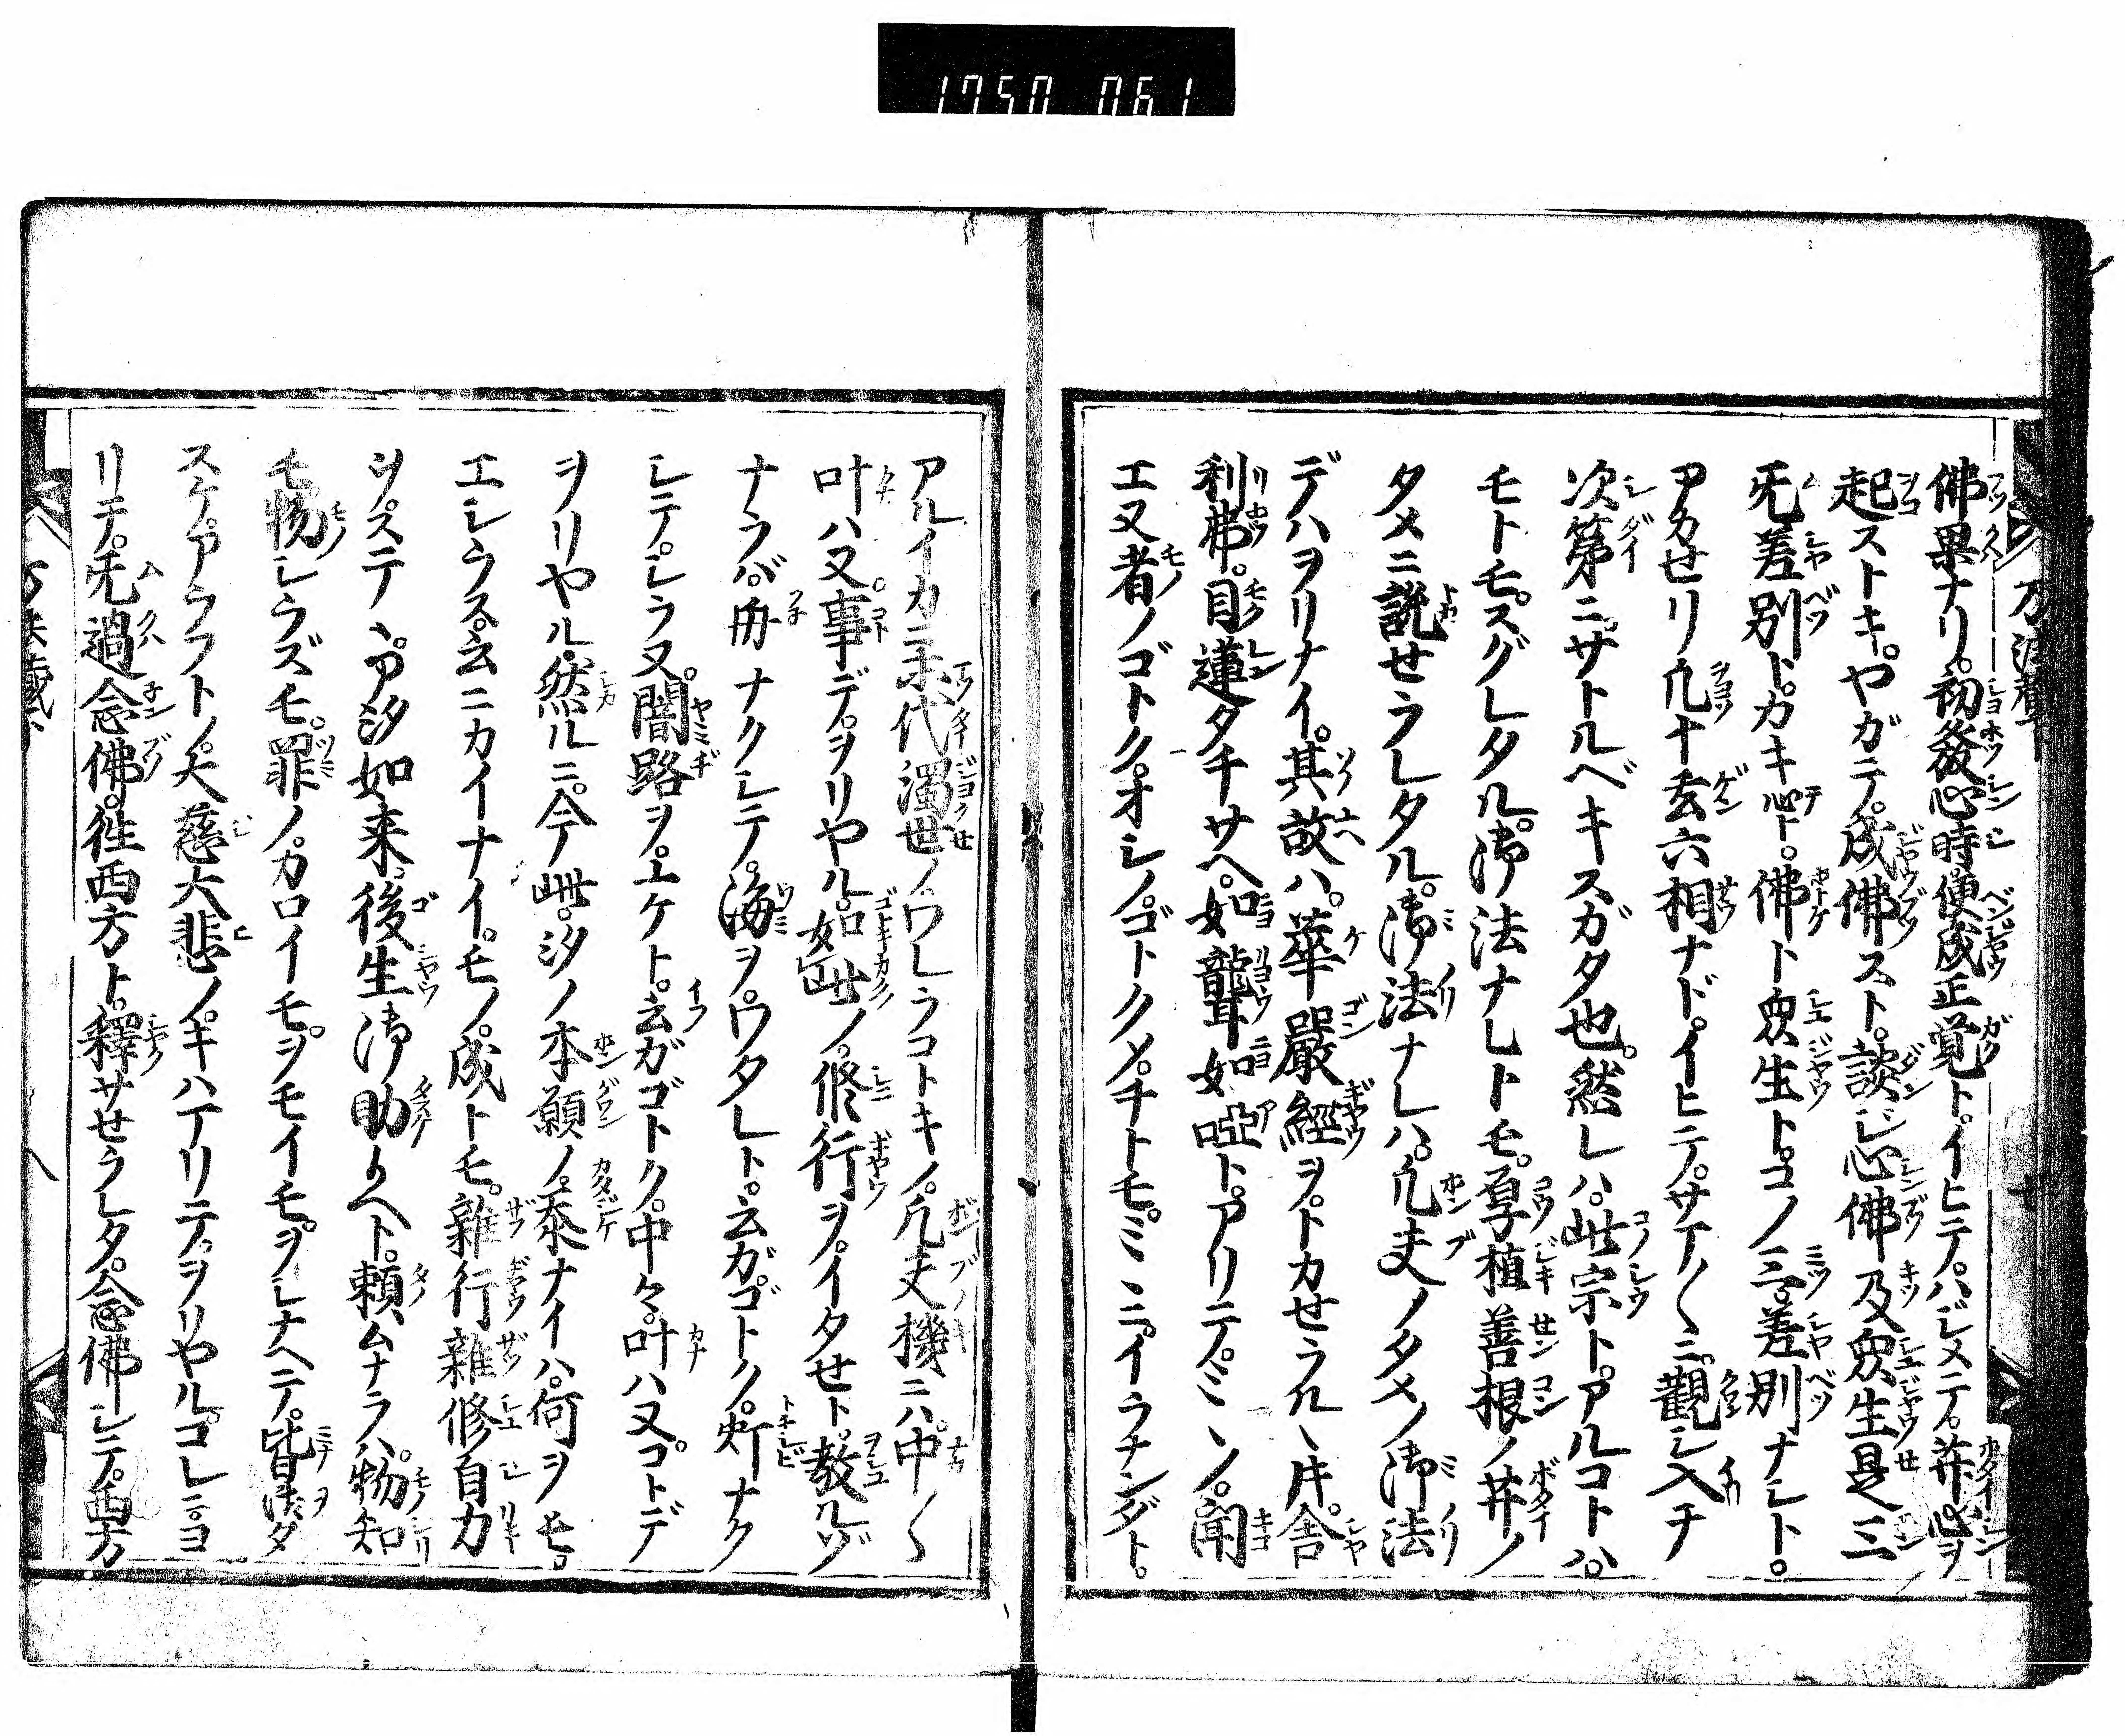 1750 061
佛果ナリ。初發心時。便成正覚ト。イヒテ。ハジメテ。菩提心ヲ
起ストキ。ヤガテ。成佛スト。談ジ心佛及衆生是三
无差別ト。カキ心ト。佛ト衆生ト。コノ三。差別ナシト。
アカセリ凢十玄六相ナド。イヒテ。サマ〱ニ。觀ジ入テ
次第ニ。サトルベキスガタ也。然レハ。此宗ト。アルコトハ。
モトモ。スグレタル。御法ナレトモ。厚植善根ノ菩提ノ
タメニ說セラレタル。御法ナレハ。凢夫ノタメノ御法
デハヲリナイ。其故ハ。華嚴經ヲ。トカせラルヽ片。舎
利弗。目蓮タチサヘ。如聾如啞ト。アリテ。ミヽノ。聞
エ又者ノゴトク。オシノ。ゴトクメ。チトモ。ミヽニ。イラナンダト。
アルイカニ末代濁世ノ。ワレラコトキノ。凢夫機ニハ。中〱
叶ハ又事デ。ヲリヤル。如此ノ。修行ヲ。イタせト。教ルヅ
ナラバ。舟ナクシテ。海ヲ。ワタレト。云ガゴトク。灯ナク
シテ。シラヌ。闇路ヲ。ユケト。云ガゴトク。中々。叶ハヌ。コトデ
ヲリヤル。然ルニ。今此。汐ノ本願ノ。忝ナイハ。何ヲモ。
エシラス。云ニカイナイ。モノ。成トモ。雜行雜修自力
ヲ。ステヽ。ア汐如来。後生御助ケヘト。頼ムナラハ。物知
モ物シラズモ。罪ノ。カロイモ。ヲモイモ。ヲシナヘテ。皆済タ
スケ。アラフト。ノ。大慈大悲ノ。キハテリテ。ヲリヤル。コレニ。ヨ
リテ。无過念佛。往西方ト。釋サせラレタ。念佛シテ。西方